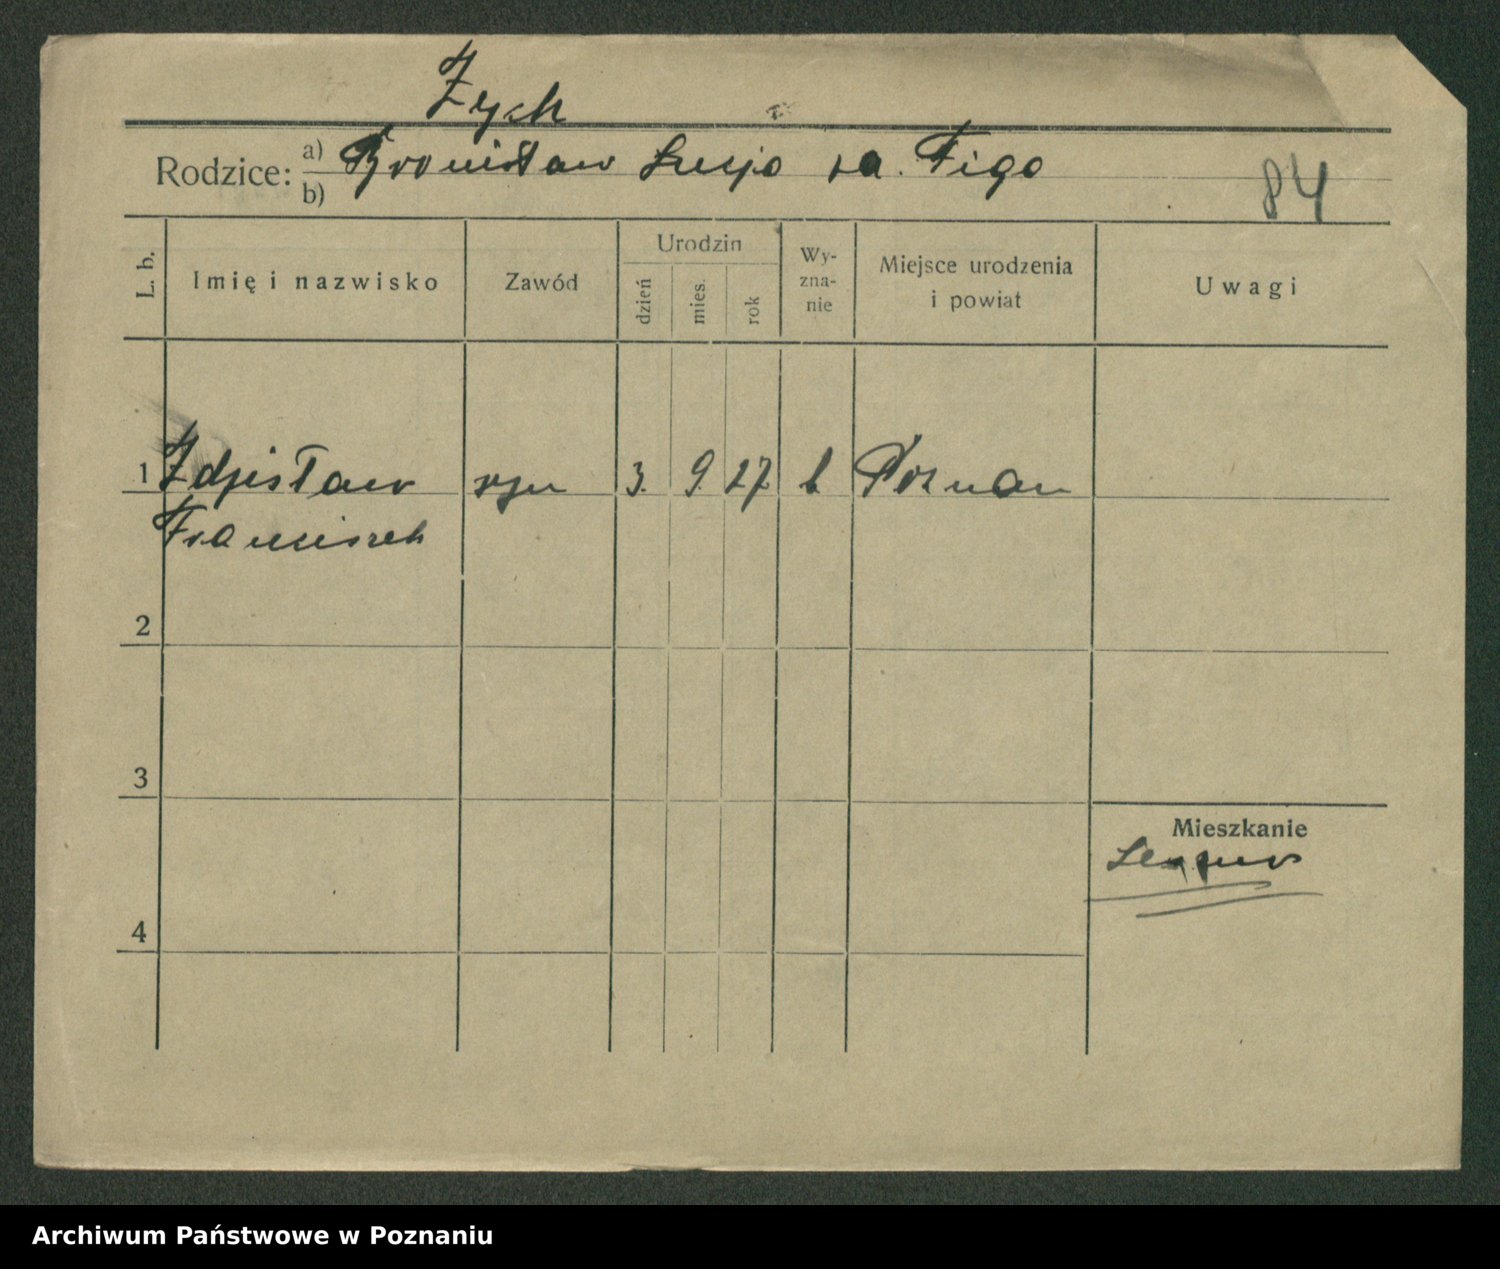 Zych
Rodzice: a) Bronisław Łucja za. Figo
b)
84
L. b. Imię i nazwisko Zawód Urodzin dzień mies. rok Wy-zna-nie Miejsce urodzenia i powiat Uwagi
1 Zdzisław syn 3. 9. 27 k Poznan
Franciszek
2
3
Mieszkanie
4
Archiwum Państwowe w Poznaniu